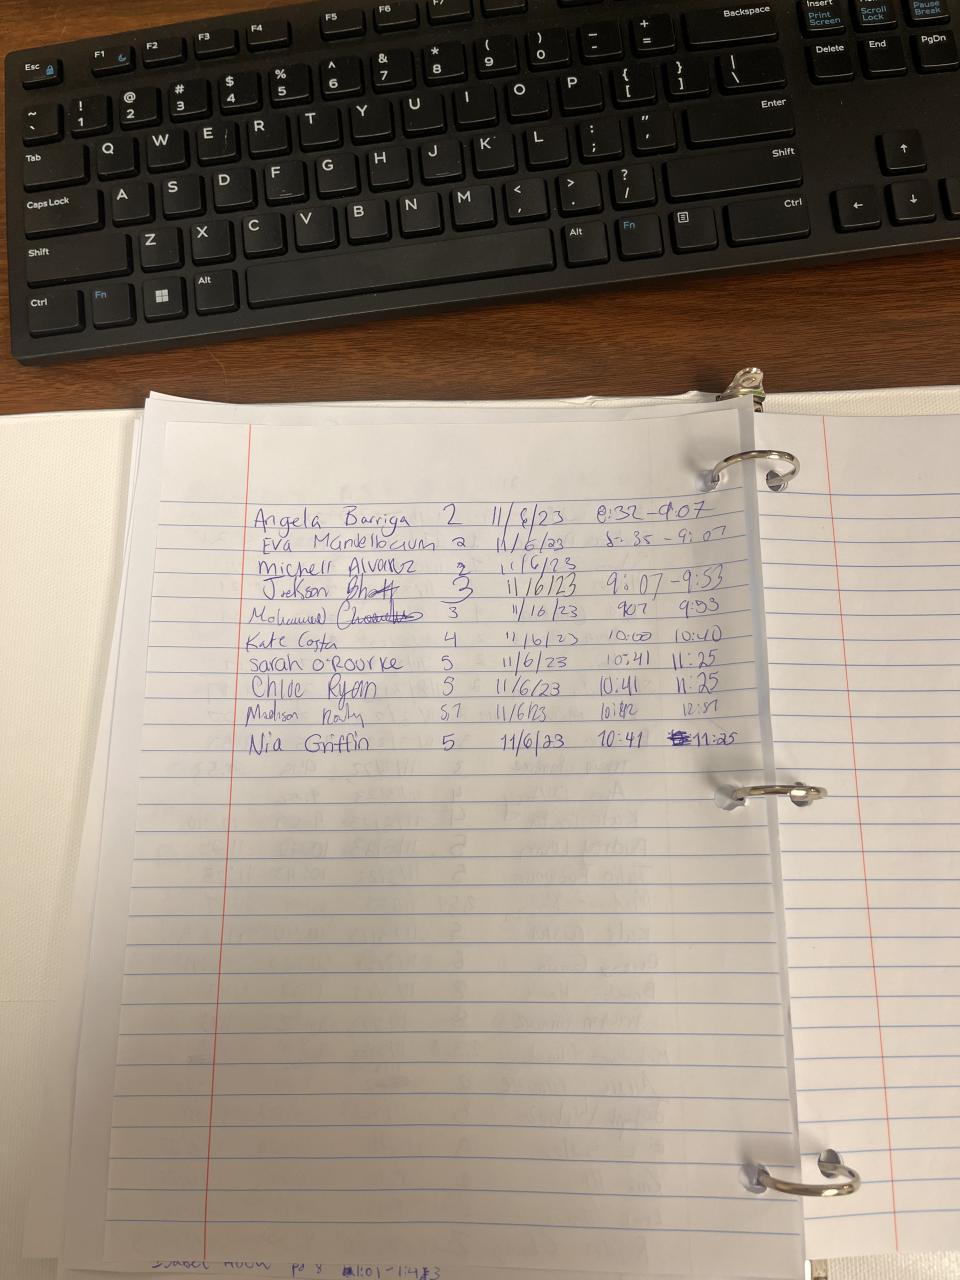 Backspace
Insert
Print Screen
Scroll Lock
Pause Break
Esc F1 F2 F3 F4 F5 F6 F7
Delete End PgDn
~ ` ! 1 @ 2 # 3 $ 4 % 5 ^ 6 & 7 * 8 ( 9 ) 0 _ - + =
Tab Q W E R T Y U I O P { [ } ] | \
Caps Lock A S D F G H J K L : ; " ' Enter
Shift Z X C V B N M < , > . ? / Shift
Ctrl Fn Alt Alt Fn Ctrl
Angela Barriga 2 11/6/23 8:32 - 9:07
Eva Mandelbaum 2 11/6/23 8:35 - 9:07
Michell Alvarez 2 11/6/23
Jackson 3 11/6/23 9:07 - 9:53
Mohammed 3 11/6/23 907 9:53
Kate Costa 4 11/6/23 10:00 10:40
Sarah O'Rourke 5 11/6/23 10:41 11:25
Chloe Ryan 5 11/6/23 10:41 11:25
Madison 5,7 11/6/23 10:42
Nia Griffin 5 11/6/23 10:41 11:25
Isabel pd 8 1:01 - 1:43